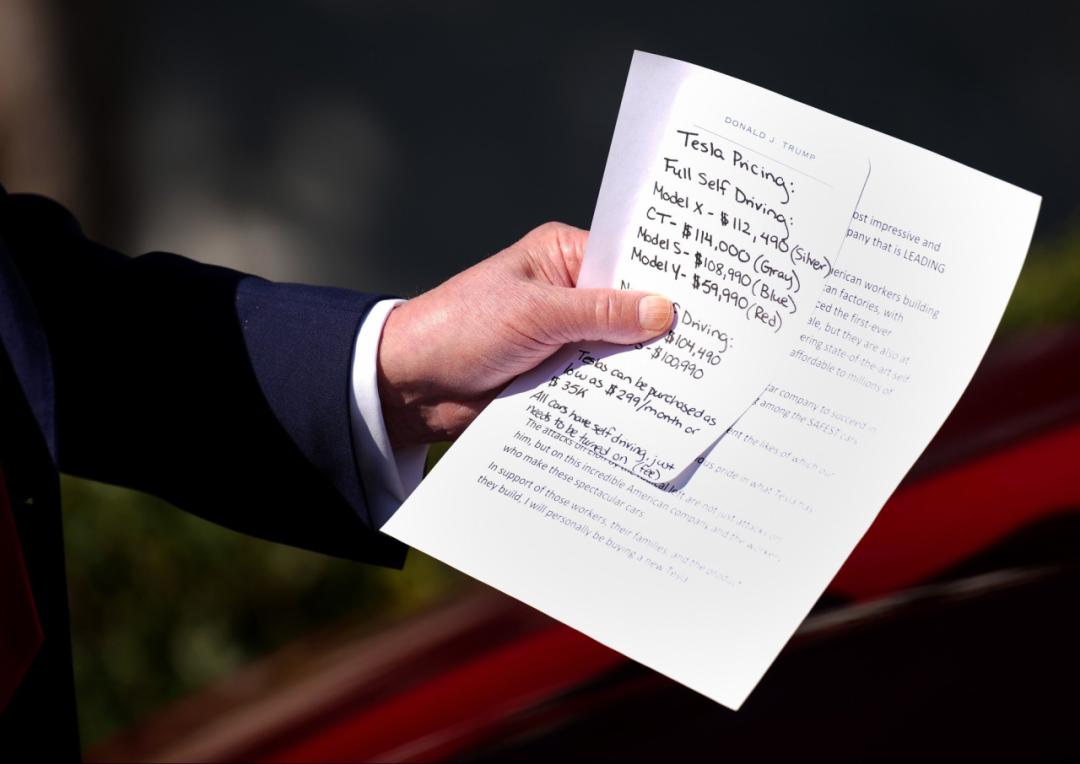 DONALD J. TRUMP
Tesla Pricing:
Full Self Driving:
Model X - $112,490 (Silver)
CT - $114,000 (Gray)
Model S - $108,990 (Blue)
Model Y - $59,990 (Red)
Driving:
$104,490
S - $100,990
Teslas can be purchased as
low as $299/month or
$35K
All cars have self driving, just
needs to be turned on (fee)
ost impressive and
pany that is LEADING
erican workers building
an factories, with
ced the first-ever
ale, but they are also at
ering state-of-the-art self-
affordable to millions of
ar company to succeed in
among the SAFEST cars
ent the likes of which our
us pride in what Tesla has
The attacks on left are not just attacks on
him, but on this incredible American company and the workers
who make these spectacular cars.
In support of those workers, their families, and the product
they build, I will personally be buying a new Tesla